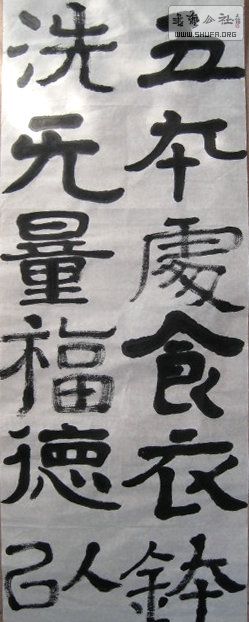 公社
WWW.SHUFA.ORG
五本處食衣鉢
洗无量福德以